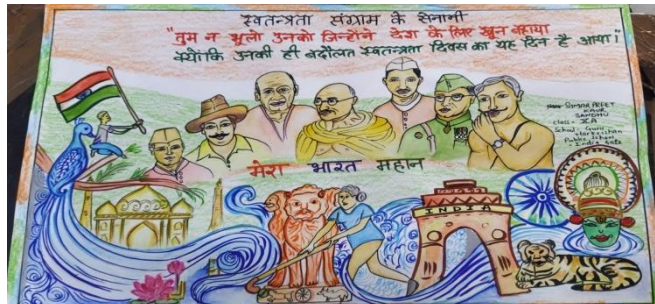 स्वतन्त्रता संग्राम के सेनानी
"तुम न भूलो उनको जिन्होंने देश के लिए खून बहाया
क्योंकि उनकी ही बदौलत स्वतन्त्रता दिवस का यह दिन है आया।"
SIMAR PREET
KAUR
SANDHU
class - XA
School - Guru
Harkrishan
Public School
India Gate
मेरा भारत महान
INDIA